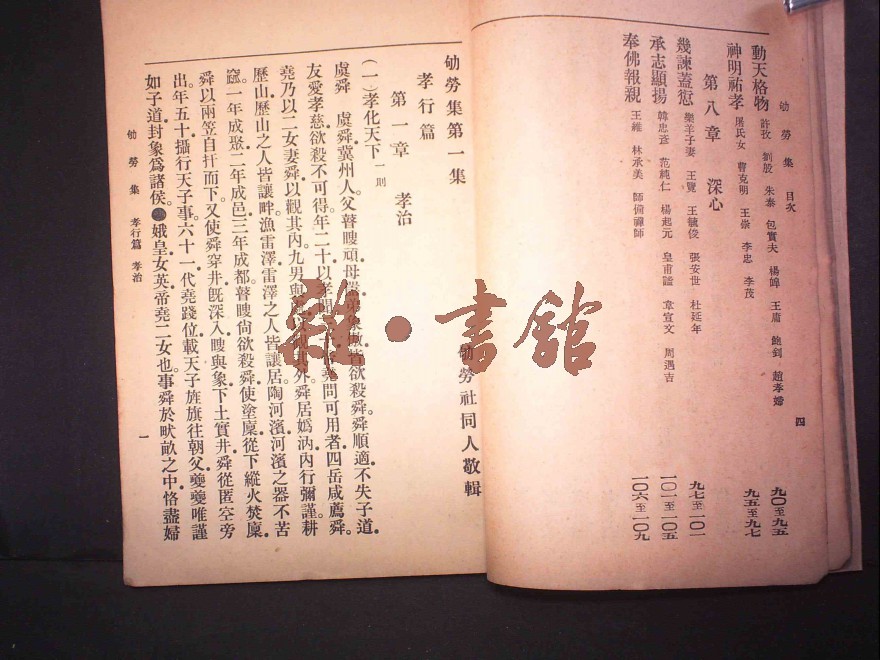 劬勞集 目次
四
動天格物 許孜 劉殷 朱泰 包實夫 楊皞 王庸 鮑到 趙孝婦 九〇至九五
神明祐孝 屠氏女 曹克明 王崇 李忠 李茂 九五至九七
第八章 深心
幾諫蓋愆 樂羊子妻 王覽 王毓俊 張安世 杜延年 九七至一〇一
承志顯揚 韓忠彥 范純仁 楊起元 皇甫謐 韋宣文 周遇吉 一〇一至一〇五
奉佛報親 王維 林承美 師備禪師 一〇六至一〇九
劬勞集第一集
劬勞社同人敬輯
孝行篇
第一章 孝治
(一)孝化天下 一則
虞舜 虞舜。冀州人。父瞽瞍頑。母嚚。弟象傲。皆欲殺舜。舜順適。不失子道。
友愛孝慈。欲殺不可得。年二十以孝聞。堯問可用者。四岳咸薦舜。
堯乃以二女妻舜。以觀其內。九男與處。以觀其外。舜居嬀汭。內行彌謹。耕
歷山。歷山之人皆讓畔。漁雷澤。雷澤之人皆讓居。陶河濱。河濱之器不苦
窳。一年成聚。二年成邑。三年成都。瞽瞍尙欲殺舜。使塗廩。從下縱火焚廩。
舜以兩笠自扞而下。又使舜穿井。旣深入。瞍與象下土實井。舜從匿空旁
出。年五十攝行天子事。六十一代堯踐位。載天子旌旗。往朝父。夔夔唯謹。
如子道。封象爲諸侯。娥皇女英。帝堯二女也。事舜於畎畝之中。恪盡婦
劬勞集 孝行篇 孝治
一
雜·書館